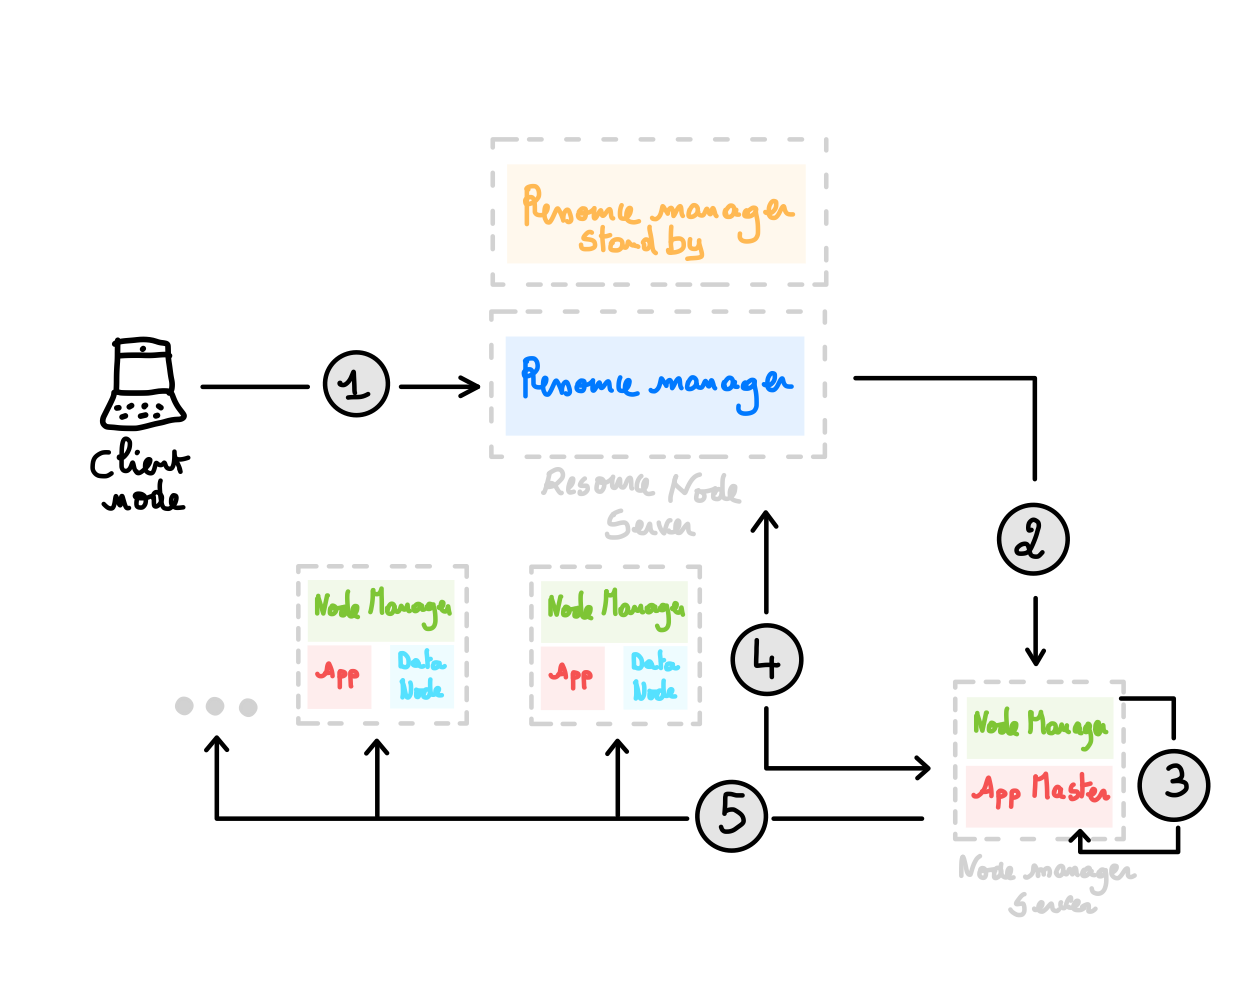 Resource manager
stand by
Resource manager
1
Client
node
Resource Node
Server
2
Node Manager
App
Data
Node
Node Manager
App
Data
Node
4
Node Manager
App Master
3
5
Node manager
Server